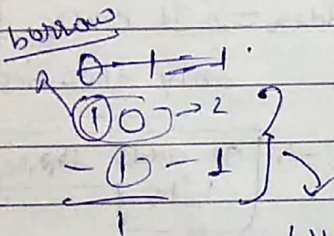 borrow
0-1=1.
10→2
-1-1
1